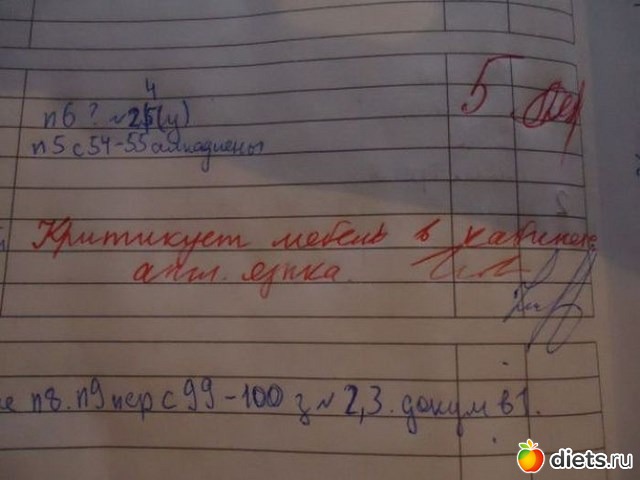 4
п6 ? ~25(у)
5
п5 с54-55 алкадиены
Критикует мебель в кабинете
англ. языка.
п8. п9 пер с 99-100 з ~ 2,3. докум в 1.
diets.ru